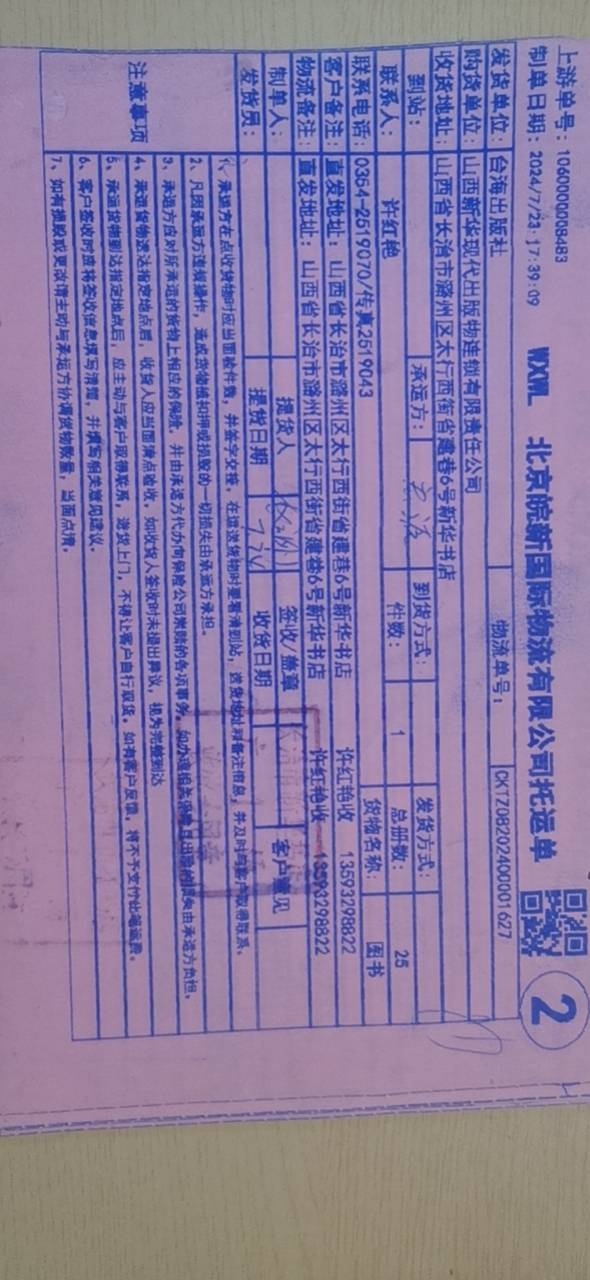 上游单号：1060008008483
WXWL 北京皖新国际物流有限公司托运单
2
制单日期：2024/7/23 17:39:09
物流单号：CKTZ0820240001627
发货单位：台海出版社
购货单位：山西新华现代出版物连锁有限责任公司
收货地址：山西省长治市潞州区太行西街省建巷6号新华书店
到站： 承运方： 到货方式： 发货方式：
联系人：许红艳 件数：1 总册数：25
联系电话：0354-2519070/传真2519043 货物名称：图书
客户备注：直发地址：山西省长治市潞州区太行西街省建巷6号新华书店 许红艳收 13593298822
物流备注：直发地址：山西省长治市潞州区太行西街省建巷6号新华书店 许红艳收 13593298822
制单人： 提货人 签收/盖章 客户意见
发货员： 提货日期 收货日期
注意事项
1、承运方在点收货物时应当面验件数，并签字交接，在运送货物时要看清到站，送货地址和备注信息，并及时与客户取得联系。
2、凡因承运方违规操作，造成货物被扣押或损毁的一切损失由承运方承担。
3、承运方应对所承运的货物上相应的保险，并由承运方代办向保险公司索赔的各项事务，如办理相关保险且出险的损失由承运方负担。
4、承运货物送达指定地点后，收货人应当面清点验收，如收货人签收时未提出异议，视为完整到达
5、承运货物到达指定地点后，应主动与客户取得联系，送货上门，不得让客户自行取货。如有客户反馈，将不予支付此笔运费。
6、客户签收时应将签收信息填写清楚，并填写相关意见建议。
7、如有损毁或更改请主动与承运方协调货物数量，当面点清。